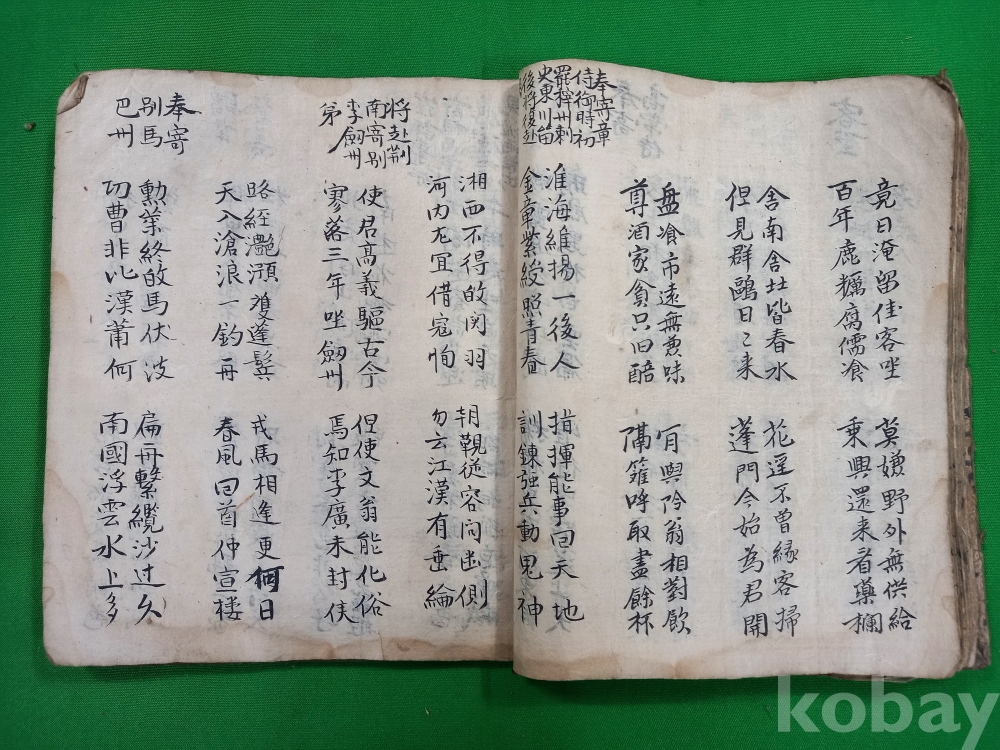 竟日淹留佳客坐
百年麁糲腐儒飡
莫嫌野外無供給
乘興還来看藥欄
舍南舍北皆春水
但見群鷗日〻来
花逕不曽縁客掃
蓬門今始為君開
盤飡市遠無兼味
尊酒家貧只旧醅
肯與隣翁相對飮
隔籬呼取盡餘杯
奉寄章
侍御時初
罷梓州刺
史東川留
後將後赴
淮海維揚一後人
金章紫綬照青春
指揮能事回天地
訓鍊强兵動鬼神
湘西不得敀関羽
河内尤宜借寇恂
朝覲從容問幽側
勿云江漢有垂綸
將赴荊
南寄别
李劒州
第
使君高義驅古今
寥落三年坐劒州
但使文翁能化俗
焉知李廣未封侯
路經灧澦雙蓬鬂
天入滄浪一釣舟
戎馬相逢更何日
春風回首仲宣楼
奉寄
别馬
巴州
勳業終敀馬伏波
功曹非比漢蕭何
扁舟繫纜沙过久
南國浮雲水上多
kobay